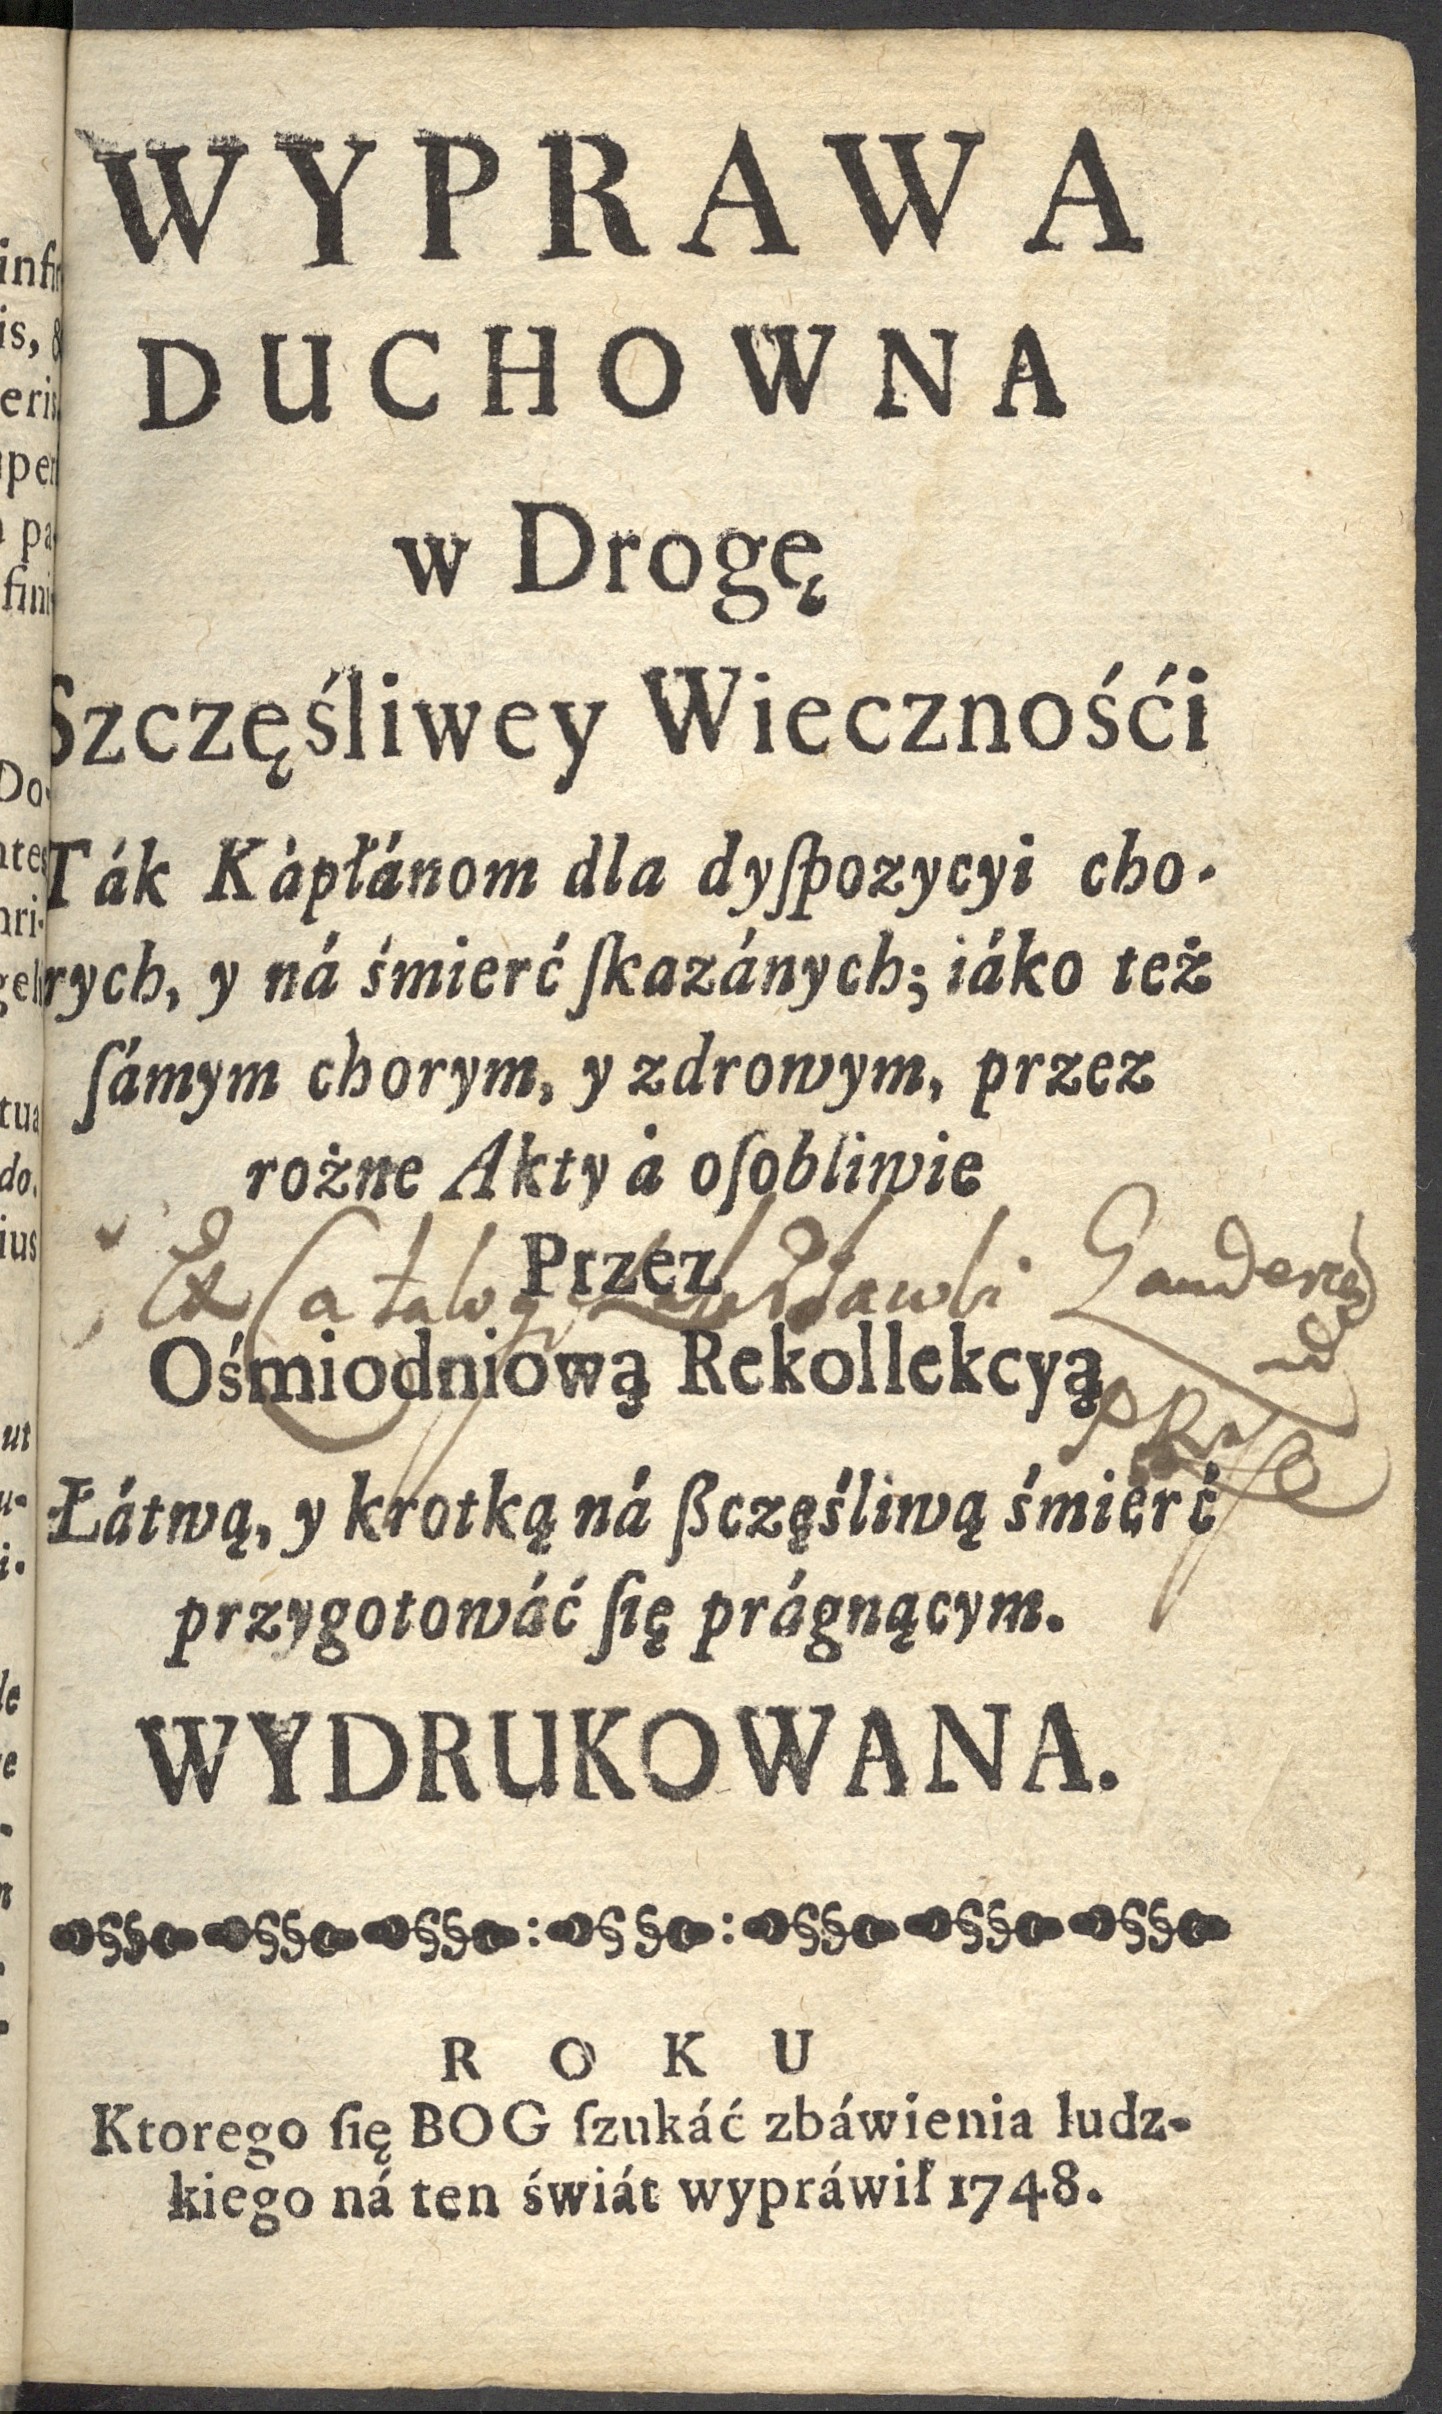 WYPRAWA
DUCHOWNA
w Drogę
Szczęśliwey Wiecznośći
Ták Kàpłánom dla dyſpozycyi cho-
rych, y ná śmierć ſkazánych; iáko też
ſámym chorym, y zdrowym, przez
rożne Akty à oſobliwie
Przez
Ex
Ośmiodniową Rekollekcyą
Łátwą, y krotką ná ßczęśliwą śmierć
przygotowáć ſię prágnącym.
WYDRUKOWANA.
ROKU
Ktorego ſię BOG ſzukáć zbáwienia ludz-
kiego ná ten świát wypráwił 1748.